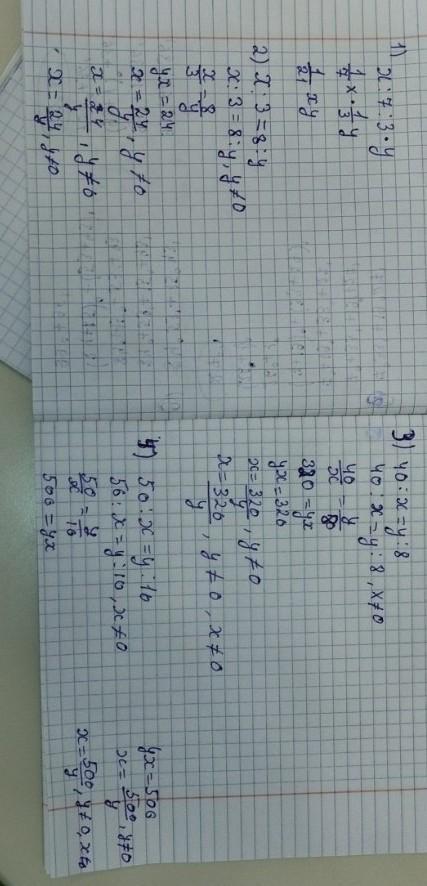 1) x:7:3·y
1/7 x · 1/3 y
1/21 xy
2) x:3=8:y
x:3=8:y, y≠0
x/3 = 8/y
yx=24
x = 24/y, y≠0
x = 24/y, y≠0
x = 24/y, y≠0
3) 40:x=y:8
40:x=y:8, x≠0
40/x = y/8
320=yx
yx=320
x = 320/y, y≠0
x = 320/y, y≠0, x≠0
4) 50:x=y:10
50:x=y:10, x≠0
50/x = y/10
500=yx
yx=500
x = 500/y, y≠0
x = 500/y, y≠0, x≠0